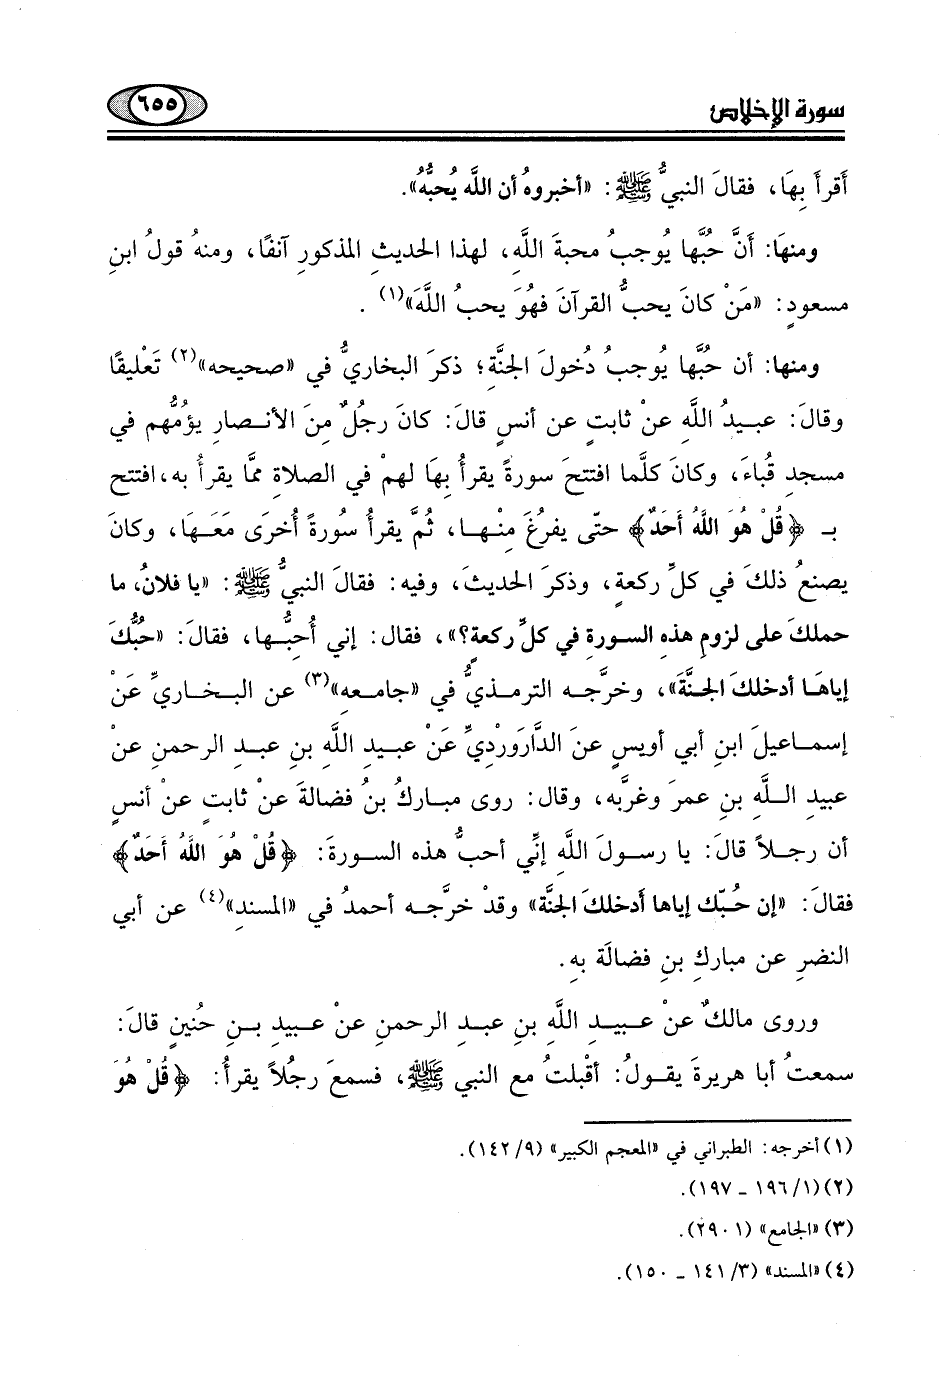 سورة الإخلاص ٦٥٥
أَقرأَ بِهَا، فقالَ النبيُّ ﷺ: «أخبروهُ أن اللَّه يُحبُّهُ».
ومنهَا: أَنَّ حُبَّها يُوجبُ محبةَ اللَّهِ، لهذا الحديثِ المذكورِ آنفًا، ومنهُ قولُ ابنِ
مسعودٍ: «مَنْ كانَ يحبُّ القرآنَ فهُوَ يحبُ اللَّهَ»(١) .
ومنها: أن حُبَّها يُوجبُ دُخولَ الجنَّةِ؛ ذكرَ البخاريُّ في «صحيحه»(٢) تَعْليقًا
وقالَ: عبـيدُ اللَّهِ عنْ ثابتٍ عن أنسٍ قالَ: كانَ رجُلٌ مِنَ الأنـصارِ يؤُمُّهم في
مسجدِ قُباءَ، وكانَ كلَّما افتتحَ سورةً يقرأُ بِهَا لهمْ في الصلاةِ ممَّا يقرأُ به،افتتح
بـ ﴿قُلْ هُوَ اللَّهُ أَحَدٌ﴾ حتّى يفرُغَ مِنْـهـا، ثُمَّ يقرأُ سُورةً أُخرَى مَعَـهَا، وكانَ
يصنعُ ذلكَ في كلِّ ركعةٍ، وذكرَ الحديثَ، وفيه: فقالَ النبيُّ ﷺ: «يا فلانُ، ما
حملكَ على لزومِ هذهِ السـورةِ في كلِّ ركعة؟»، فقال: إني أُحِبُّـها، فقالَ: «حُبُّكَ
إياهَـا أدخلكَ الجنَّةَ»، وخرَّجـه الترمـذيُّ في «جامـعه»(٣) عن البـخاريِّ عَنْ
إسمـاعيلَ ابنِ أبي أويسٍ عنَ الدَّارَوَرْديِّ عَنْ عبـيدِ اللَّهِ بنِ عبـدِ الرحمنِ عنْ
عبيدِ الـلَّهِ بنِ عمرَ وغربَّه، وقال: روى مبـاركُ بنُ فضالةَ عنْ ثابتٍ عنْ أنسٍ
أن رجـلاً قالَ: يا رسـولَ اللَّهِ إنِّي أحبُّ هذه السـورةَ: ﴿قُلْ هُوَ اللَّهُ أَحَدٌ﴾
فقالَ: «إن حُبّك إياها أدخلكَ الجنَّة» وقدْ خرَّجـه أحمدُ في «المسندِ»(٤) عن أبي
النضرِ عن مباركِ بنِ فضالَة بهِ.
وروى مالكٌ عنْ عـبـيـدِ اللَّهِ بنِ عبـدِ الرحمنِ عنْ عـبيدِ بـنِ حُنينٍ قالَ:
سمعتُ أبا هريرةَ يقـولُ: أقْبلتُ مع النبي ﷺ، فسمعَ رجُلاً يقرأُ: ﴿قُلْ هُوَ
(١) أخرجه: الطبراني في «المعجم الكبير» (٩/ ١٤٢).
(٢) (١/ ١٩٦ ـ ١٩٧).
(٣) «الجامع» (٢٩٠١).
(٤) «المسند» (٣/ ١٤١ ـ ١٥٠).